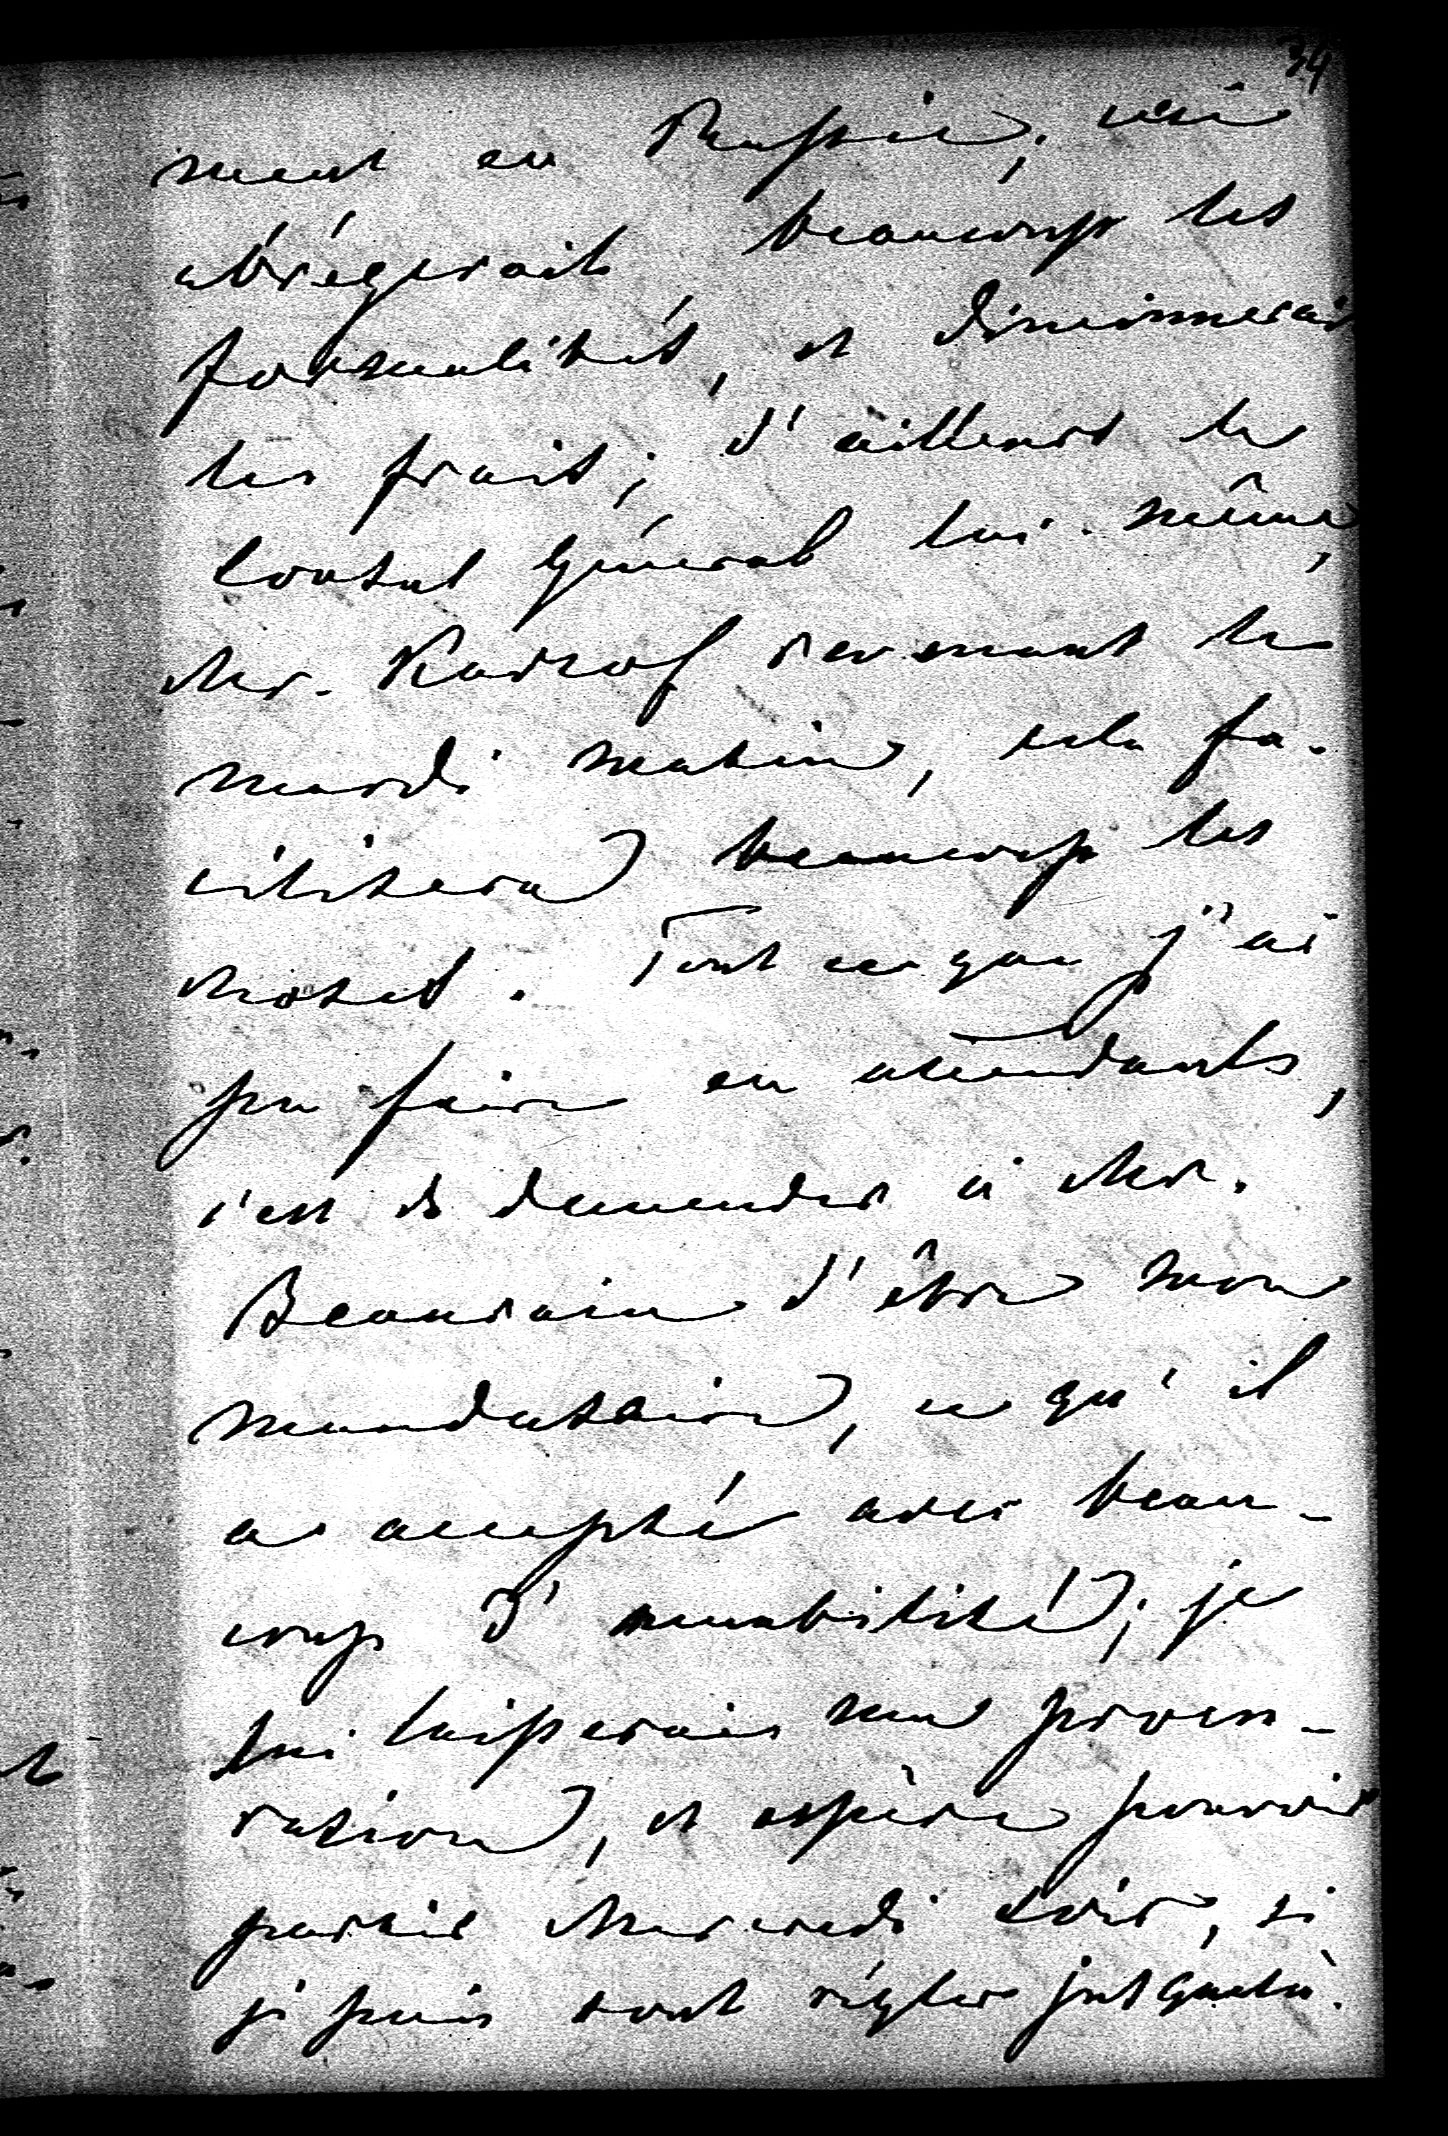 34
ment en Russie; ceci
abrégerait beaucoup les
formalités, et diminuerait
les frais; d'ailleurs le
Consul Général lui-même,
Mr. Kartzof revenant le
mardi matin, cela fa-
cilitera beaucoup les
choses. Tout ce que j'ai
pu faire en attendant,
c'est de demander à Mr.
Beaurain d'être mon
mandataire, ce qu'il
a accepté avec beau-
coup d'amabilité; je
lui laisserais une procu-
ration, et espère pouvoir
partir Mercredi soir, si
je puis tout régler jusque là.